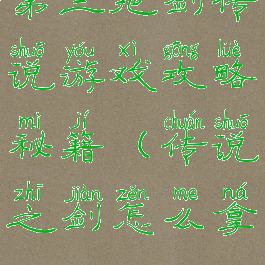 第三把剑传
shuō yóu xì gōng lüè
说游戏攻略
mì jí chuán shuō
秘籍（传说
zhī jiàn zěn me ná
之剑怎么拿